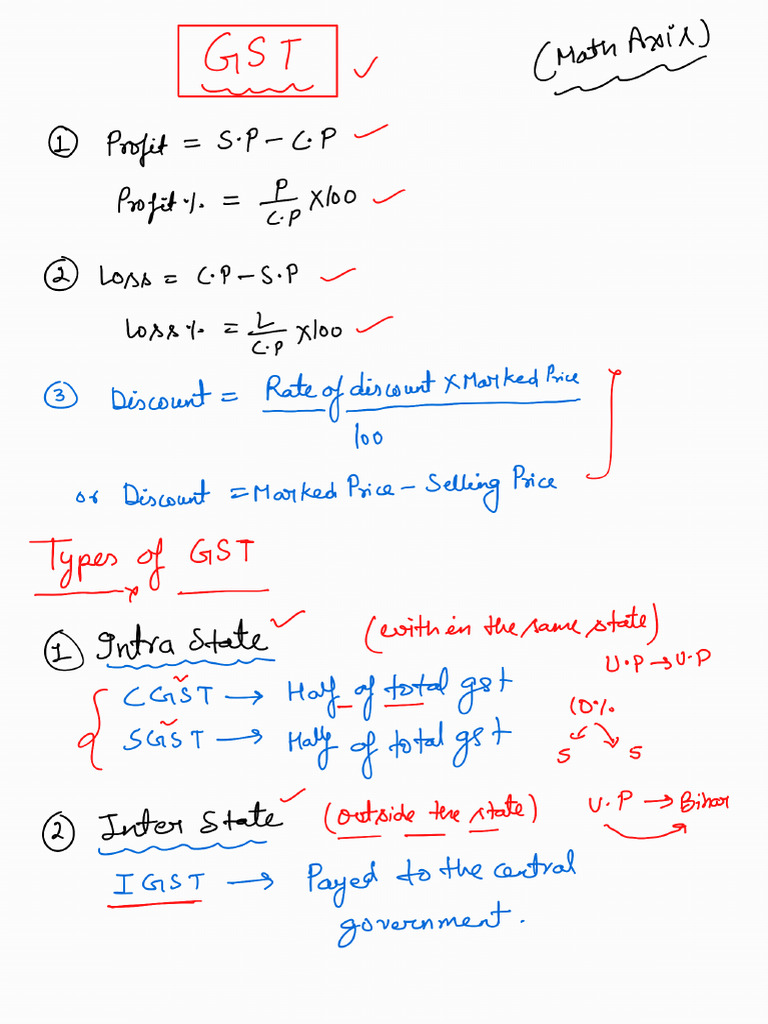 GST
(Math Axis)
① Profit = S.P - C.P
Profit % = P/C.P × 100
② Loss = C.P - S.P
Loss % = L/C.P × 100
③ Discount = Rate of discount × Marked Price / 100
or Discount = Marked Price - Selling Price
Types of GST
① Intra State (within the same state)
U.P → U.P
CGST → Half of total gst
10%
SGST → Half of total gst
5 5
② Inter State (outside the state) U.P → Bihar
IGST → Payed to the central
government.